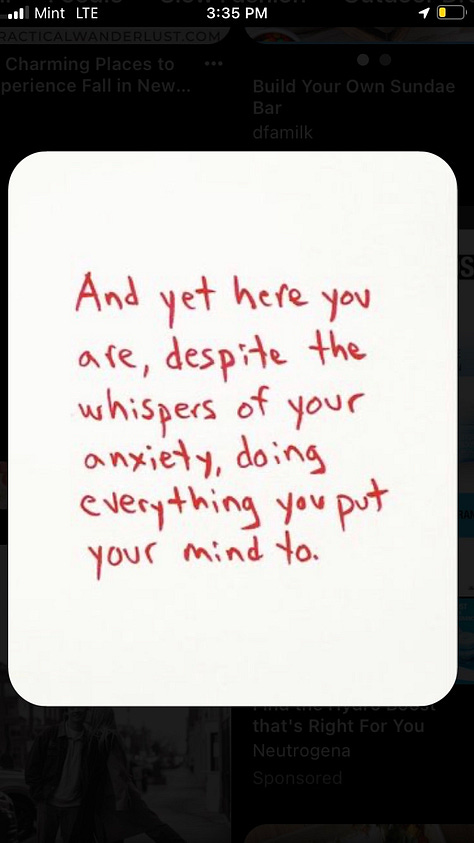 Mint LTE
3:35 PM
RACTICALWANDERLUST.COM
Charming Places to
perience Fall in New...
Build Your Own Sundae
Bar
dfamilk
And yet here you
are, despite the
whispers of your
anxiety, doing
everything you put
your mind to.
that's Right For You
Neutrogena
Sponsored